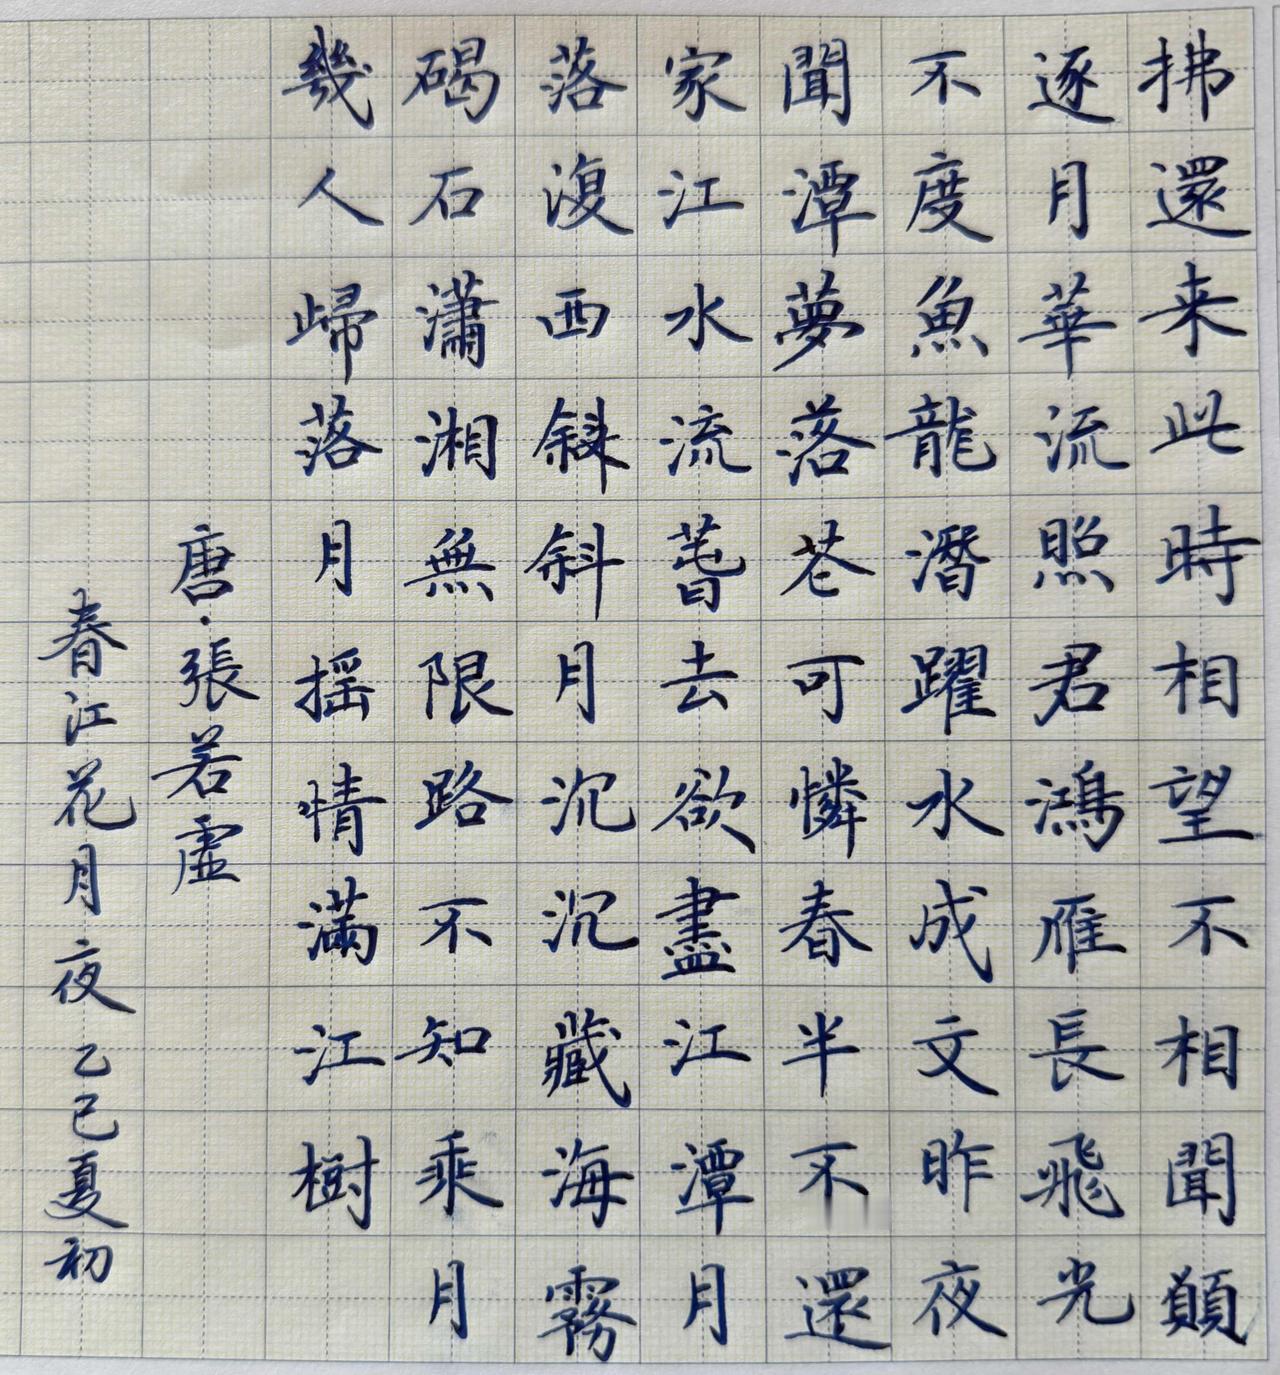 拂還来此時相望不相聞願
逐月華流照君鴻雁長飛光
不度魚龍潛躍水成文昨夜
聞潭夢落芲可憐春半不還
家江水流萅去欲盡江潭月
落復西斜斜月沉沉藏海霧
碣石瀟湘無限路不知乘月
幾人㱕落月摇情滿江樹
唐·張若虛
春江花月夜 乙巳夏初